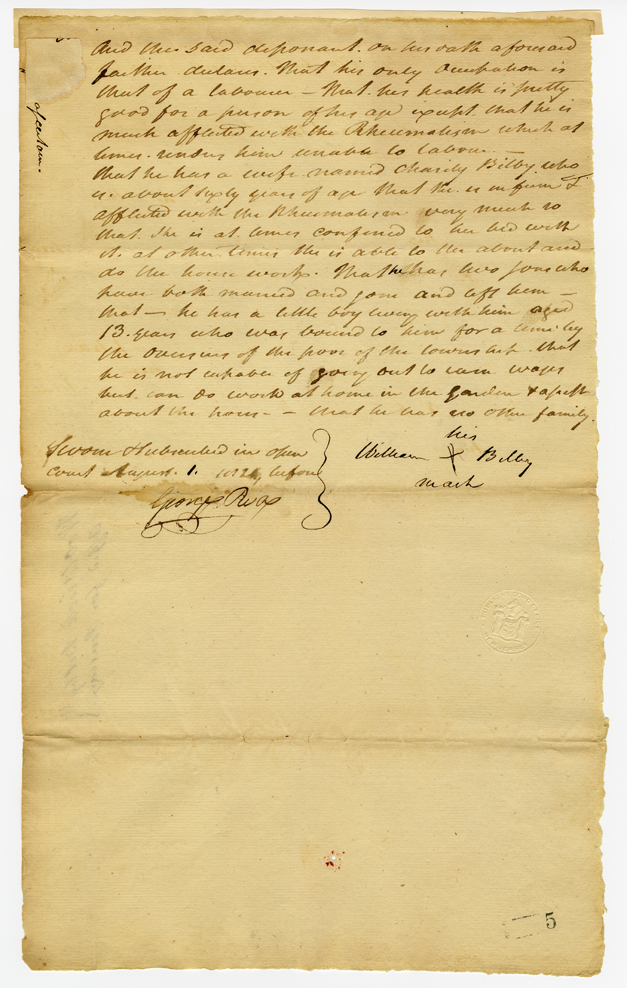 And the said deponant. on his oath aforesaid
farther declares. That his only Occupation is
that of a labourer – that his health is pretty
good for a person of his age except that he is
much afflicted with the Rheumatism which at
times. renders him unable to labour. –
that he has a wife named Charity Bilby who
is about sixty years of age that she is infirm &
afflicted with the Rheumatism very much so
that she is at times confined to her bed with
it. at other times she is able to be about and
do the house work. That he has two sons who
have both married and gone and left him –
that – he has a little boy living with him aged
13. years who was bound to him for a time by
the overseers of the poor of the township. that
he is not capable of going out to earn wages
but can do work at home in the garden & assist
about the house – – that he has no other family.
his
William X Bilby
mark
Sworn & subscribed in open
Court August. 1. before
George Rea
5